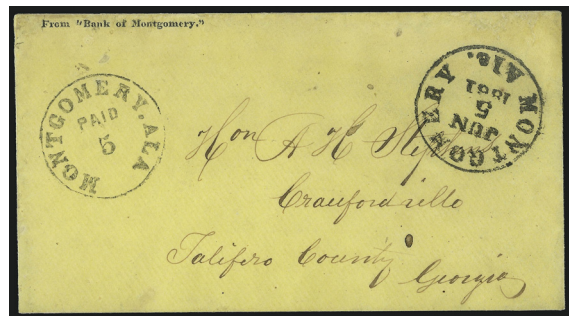 From "Bank of Montgomery."
MONTGOMERY. ALA
PAID
5
MONTGOMERY Ala.
JUN
5
1861
Hon A H Stephens
Crawfordville
Talifero County
Georgia